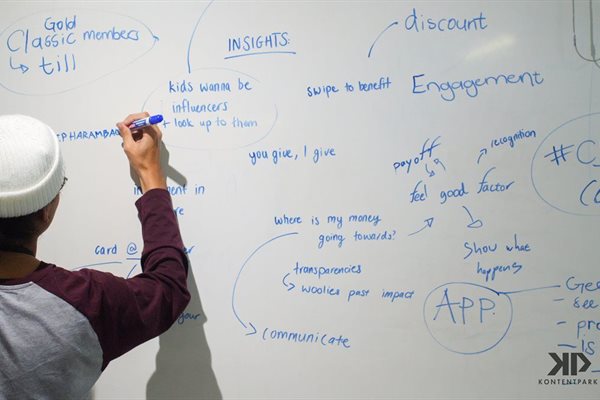 Gold
Classic members
till
INSIGHTS:
discount
kids wanna be
influencers
+ look up to them
swipe to benefit
Engagement
PHARAMBA
you give, I give
payoff
recognition
feel good factor
#C
in
card @
where is my money
going towards?
Show what
happens
transparencies
woolies past impact
communicate
your
APP.
Ge
see
pro
Is
KP
KONTENTPARK